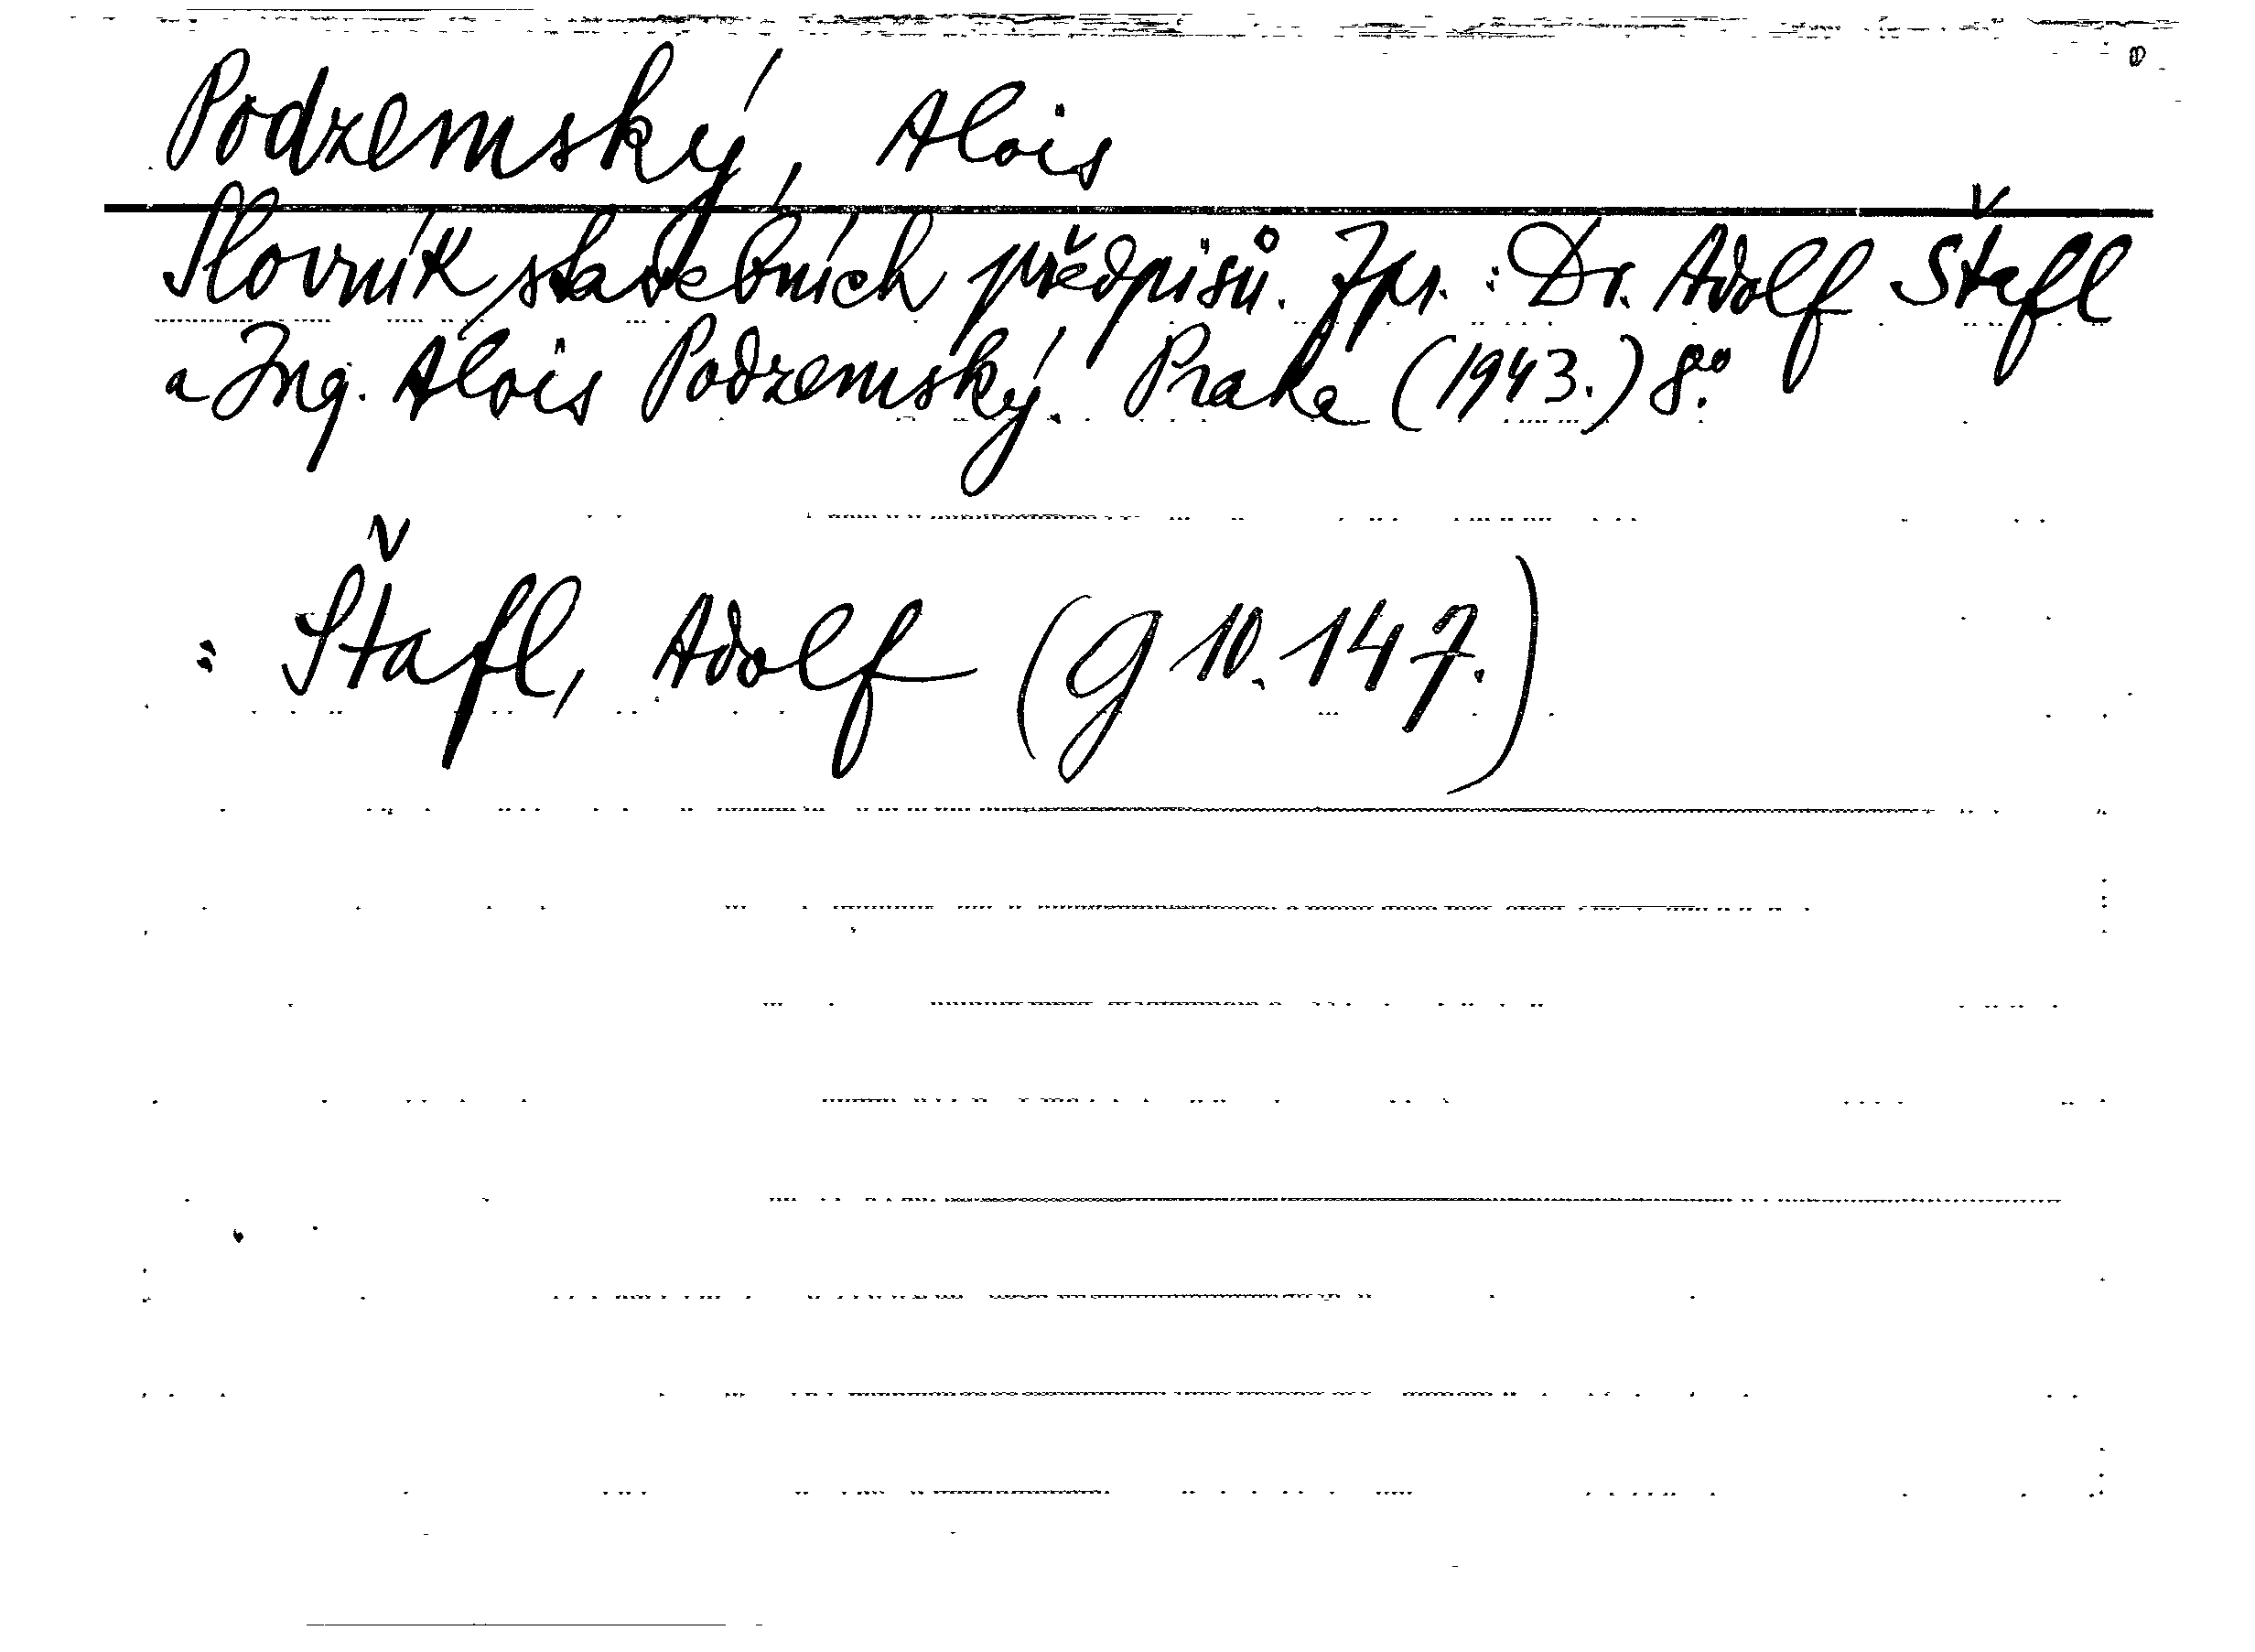 Podzemský, Alois
Slovník stavebních předpisů. Zpr.: Dr. Adolf Štafl
a Ing. Alois Podzemský. Praha (1943.) 8.°
: Štafl, Adolf (G 10.147.)